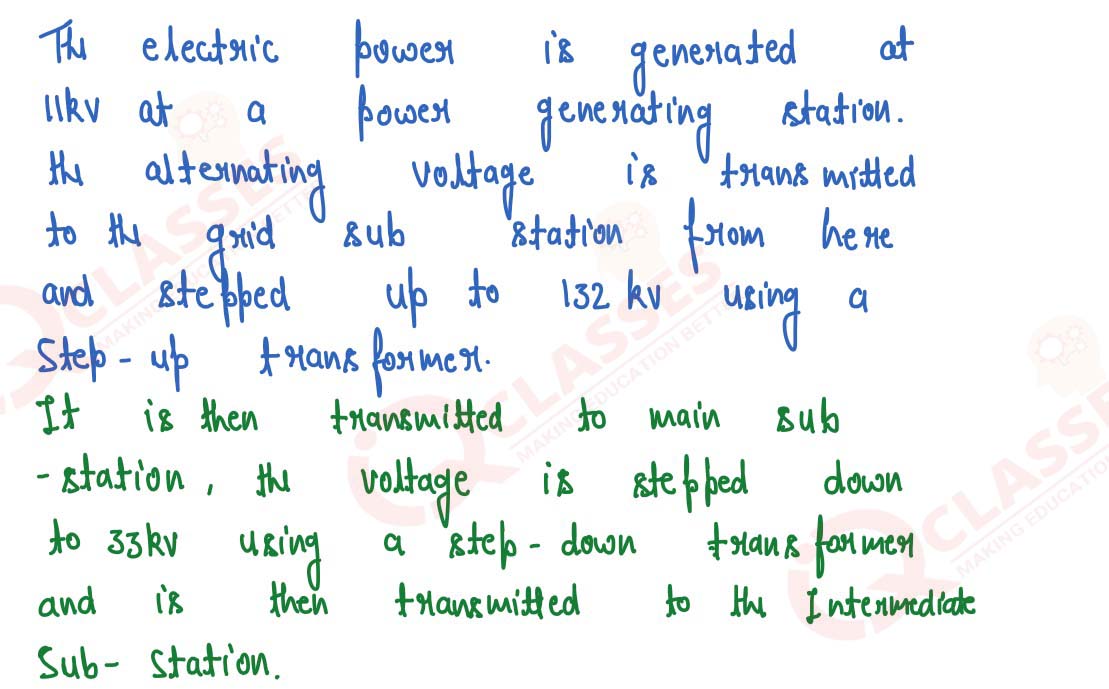 The electric power is generated at
11kv at a power generating station.
the alternating voltage is transmitted
to the grid sub station from here
and stepped up to 132 kv using a
Step-up transformer.
It is then transmitted to main sub
-station, the voltage is stepped down
to 33kv using a step-down transformer
and is then transmitted to the Intermediate
Sub-station.
CLASSES
MAKING EDUCATION BETTER
CLASSES
MAKING EDUCATION BETTER
CLASSES
MAKING EDUCATION